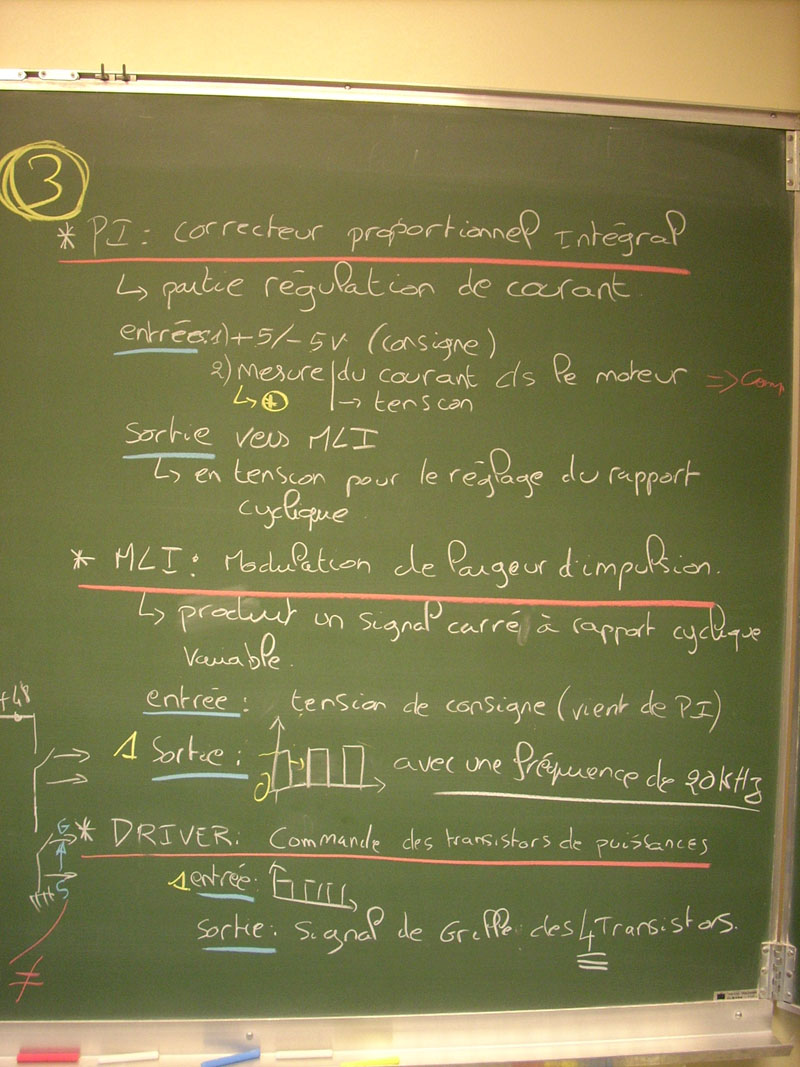 3
* PI : correcteur proportionnel Intégral
↳ partie régulation de courant
entrées : 1) +5/-5V (consigne)
2) Mesure du courant ds le moteur =>
↳ * → tension
Sortie vers MLI
↳ en tension pour le réglage du rapport
cyclique
* MLI : Modulation de largeur d'impulsion.
↳ produit un signal carré à rapport cyclique
variable.
entrée : tension de consigne (vient de PI)
+48
1 Sortie : avec une fréquence de 20 kHz
0
G
* DRIVER : Commande des transistors de puissances
S
1 entrée :
Sortie : Signal de Grille des 4 Transistors.
≠